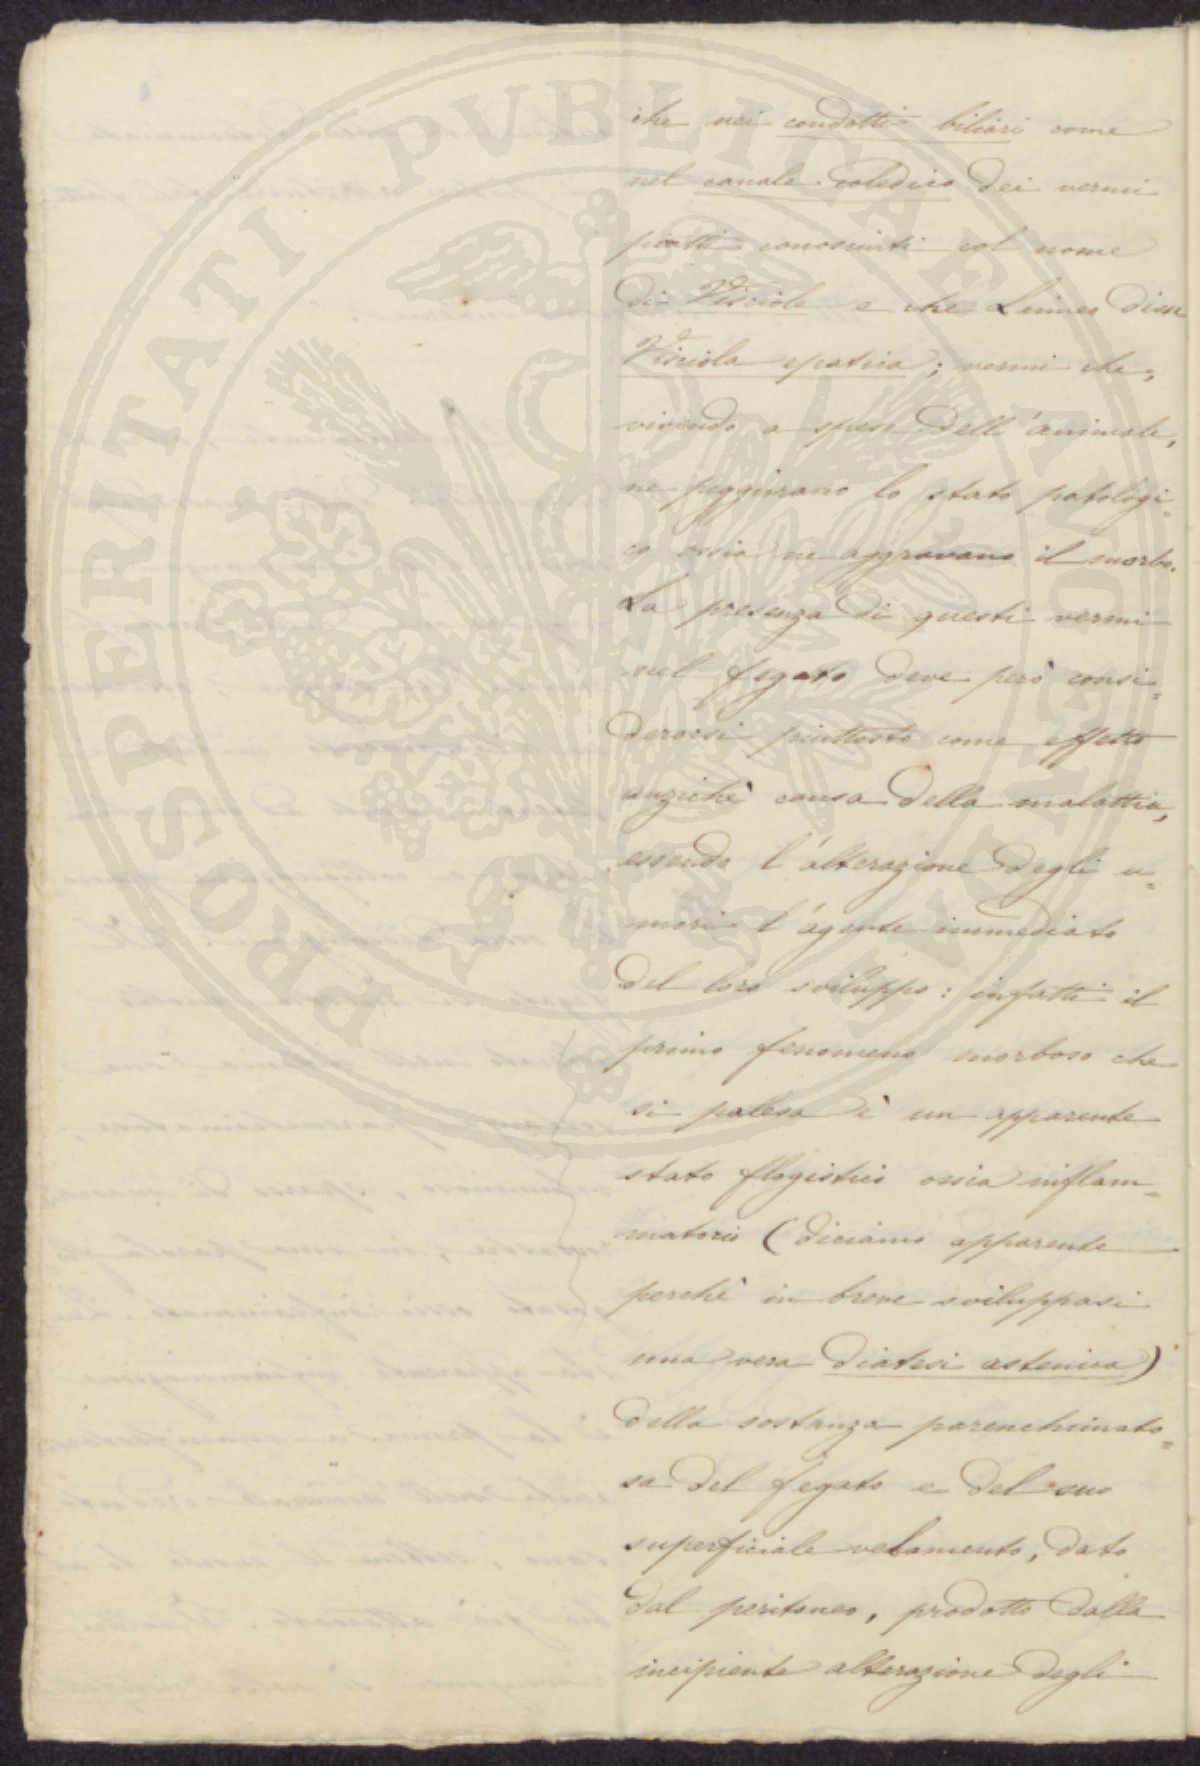 PROSPERITATI PVBLICAE AVGENDAE
che nei condotti biliari come
nel canale coledico dei vermi
piatti conosciuti col nome
di Fisciole e che Linneo disse
Fisciola epatica; vermi che,
vivendo a spese dell'animale,
ne peggiorano lo stato patologi=
co ossia ne aggravano il morbo.
La presenza di questi vermi
nel fegato deve però consi=
derarsi piuttosto come effetto
anzichè causa della malattia,
essendo l'alterazione degli u=
mori l'agente immediato
del loro sviluppo: infatti il
primo fenomeno morboso che
si palesa è un apparente
stato flogistico ossia inflam=
matorio (diciamo apparente
perchè in breve sviluppasi
una vera diatesi astenica)
della sostanza parenchimato=
sa del fegato e del suo
superficiale velamento, dato
dal peritoneo, prodotto dalla
incipiente alterazione degli